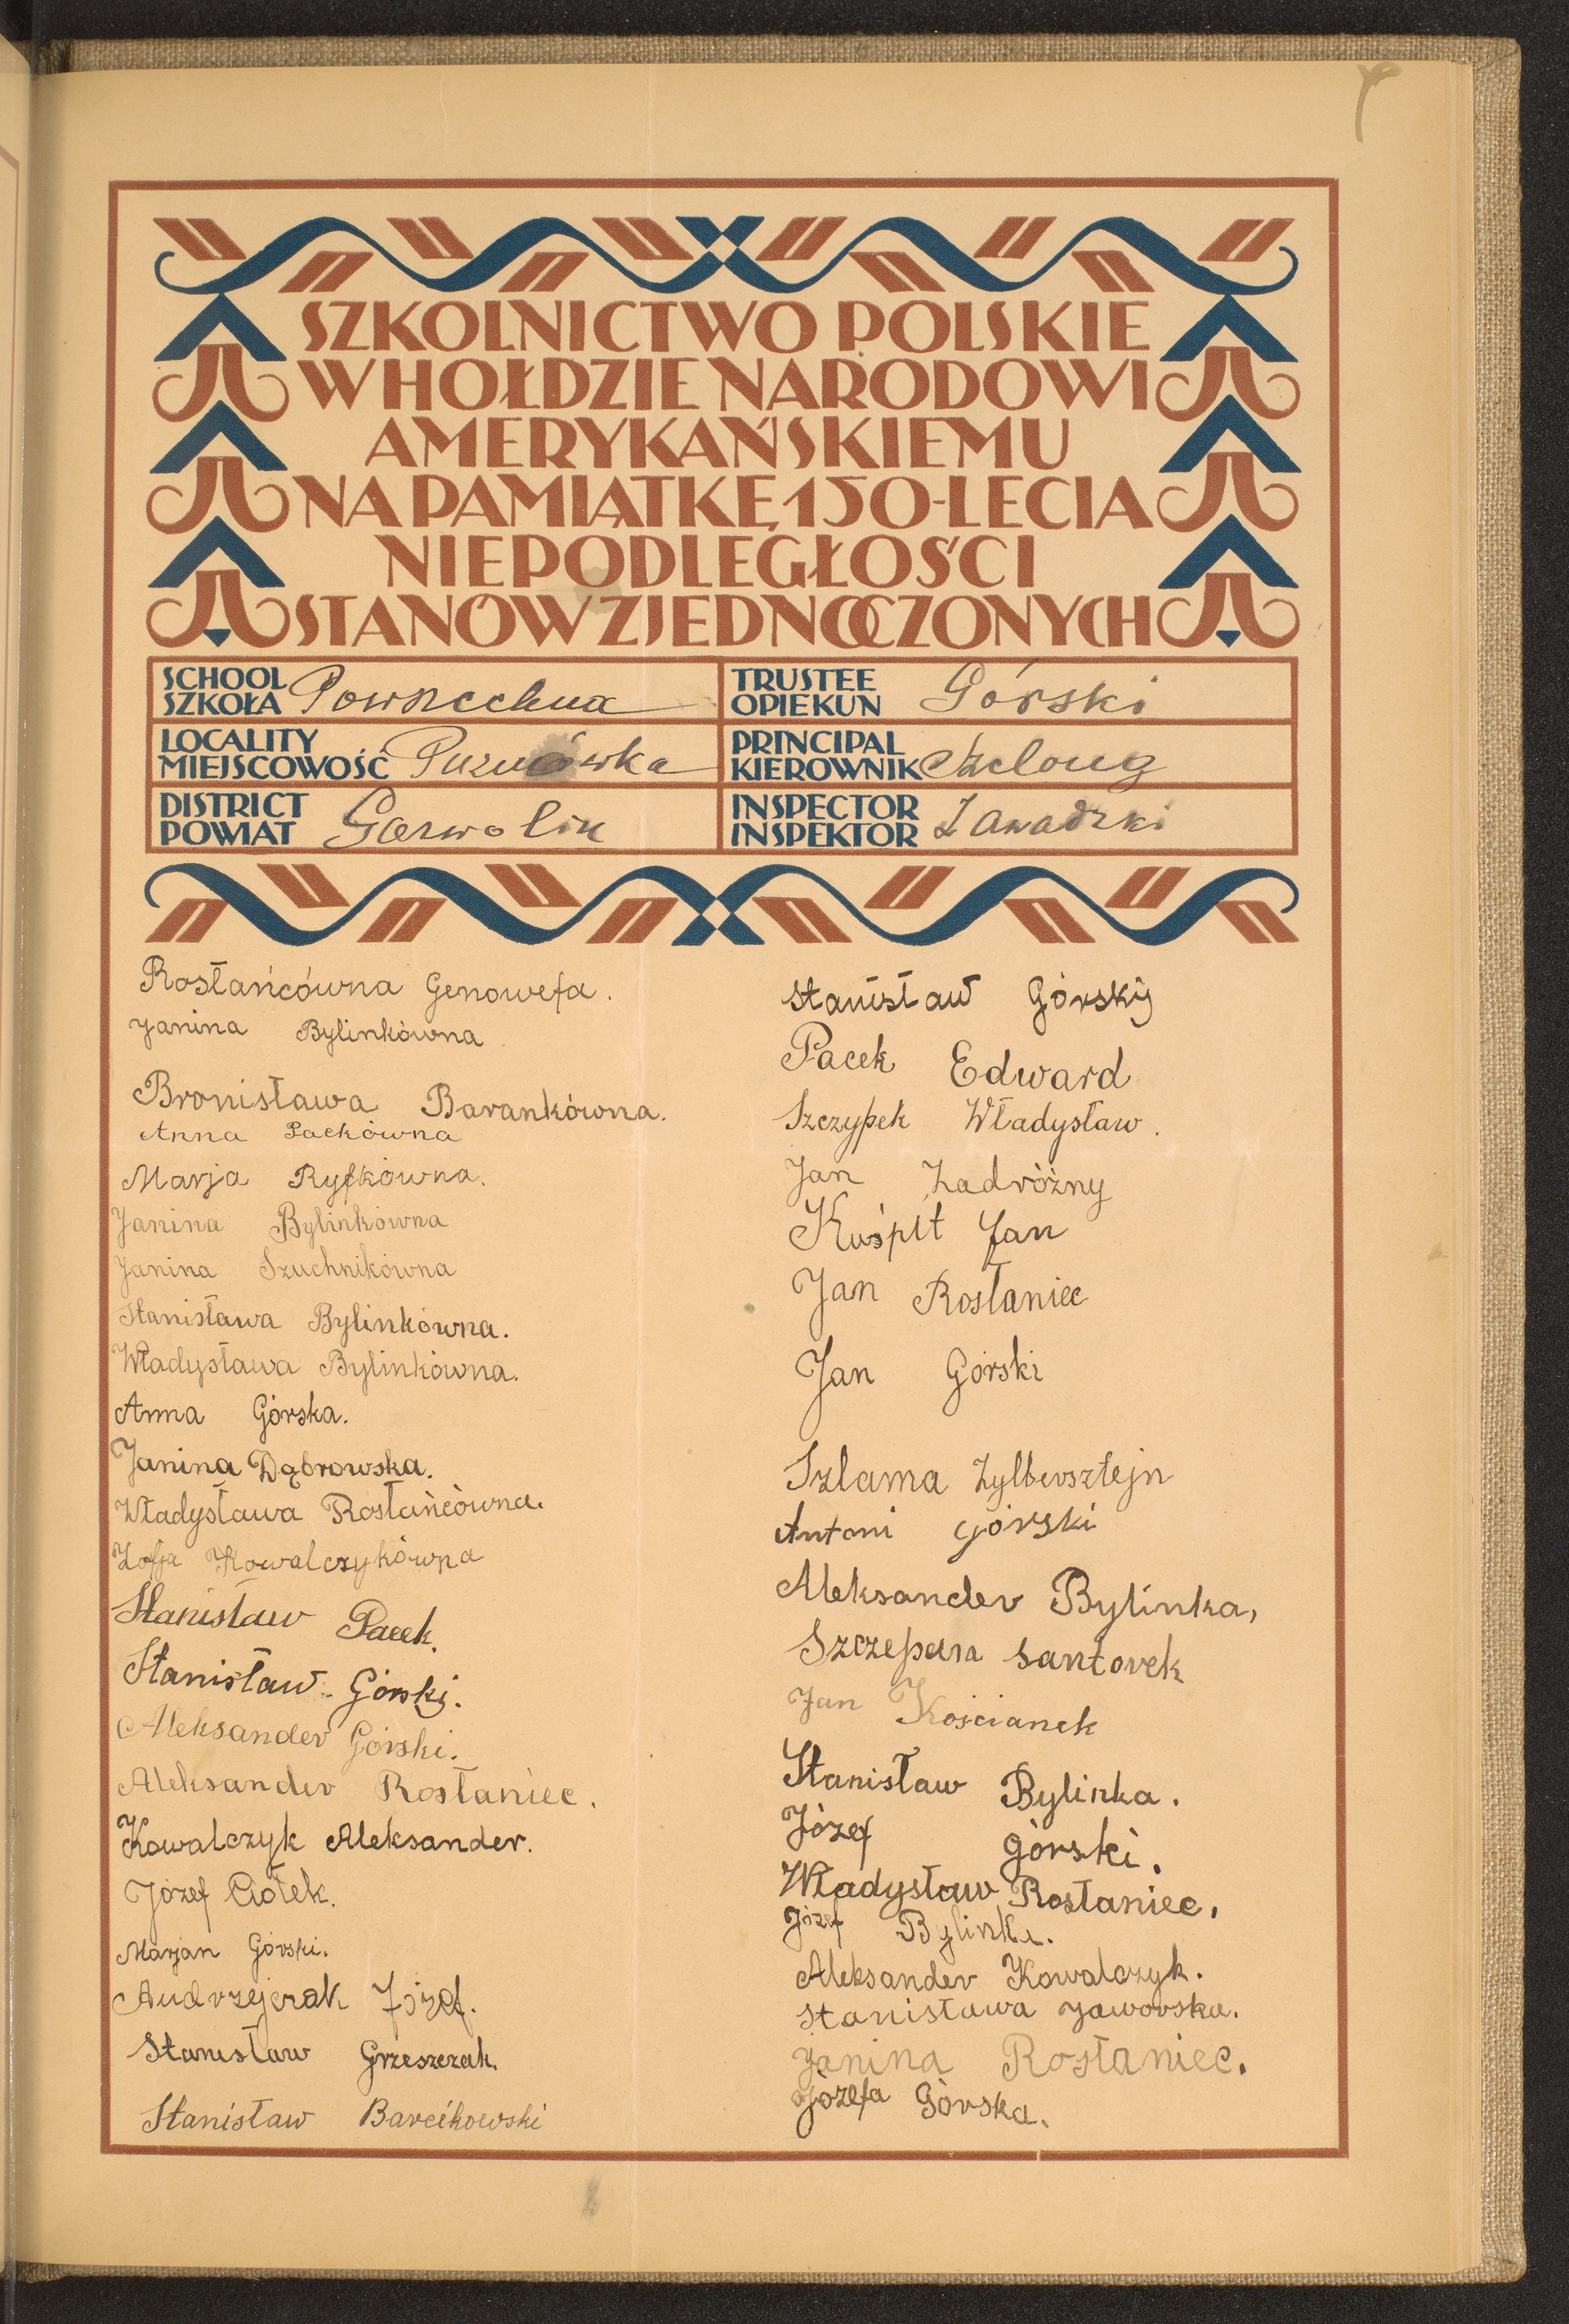 SZKOLNICTWO POLSKIE
W HOŁDZIE NARODOWI
AMERYKAŃSKIEMU
NA PAMIĄTKĘ 150-LECIA
NIEPODLEGŁOŚCI
STANÓW ZJEDNOCZONYCH
SCHOOL
SZKOŁA Powszechna
TRUSTEE
OPIEKUN Górski
LOCALITY
MIEJSCOWOŚĆ Puznówka
PRINCIPAL
KIEROWNIK
DISTRICT
POWIAT Garwolin
INSPECTOR
INSPEKTOR Zawadzki
Rosłańcówna Genowefa.
Janina Bylinkówna
Bronisława Barankówna.
Anna Packówna
Marja Ryfkówna.
Janina Bylinkówna
Janina Szuchnikówna
Stanisława Bylinkówna.
Władysława Bylinkówna.
Anna Górska.
Janina Dąbrowska.
Władysława Rosłańcówna.
Zofja Kowalczykówna
Stanisław Pacek.
Stanisław Górski.
Aleksander Górski.
Aleksander Rosłaniec.
Kowalczyk Aleksander.
Józef Ciołek.
Marjan Górski.
Andrzejczak Józef.
Stanisław Grzeszczak.
Stanisław Barcikowski
Stanisław Górski
Pacek Edward
Szczypek Władysław.
Jan Zadróżny
Kuśpit Jan
Jan Rosłaniec
Jan Górski
Szlama Zylbersztejn
Antoni Górski
Aleksander Bylinka,
Szczepan Santorek
Jan Kościanek
Stanisław Bylinka.
Józef Górski.
Władysław Rosłaniec.
Józef Bylinka.
Aleksander Kowalczyk.
Stanisława Jaworska.
Janina Rosłaniec.
Józefa Górska.